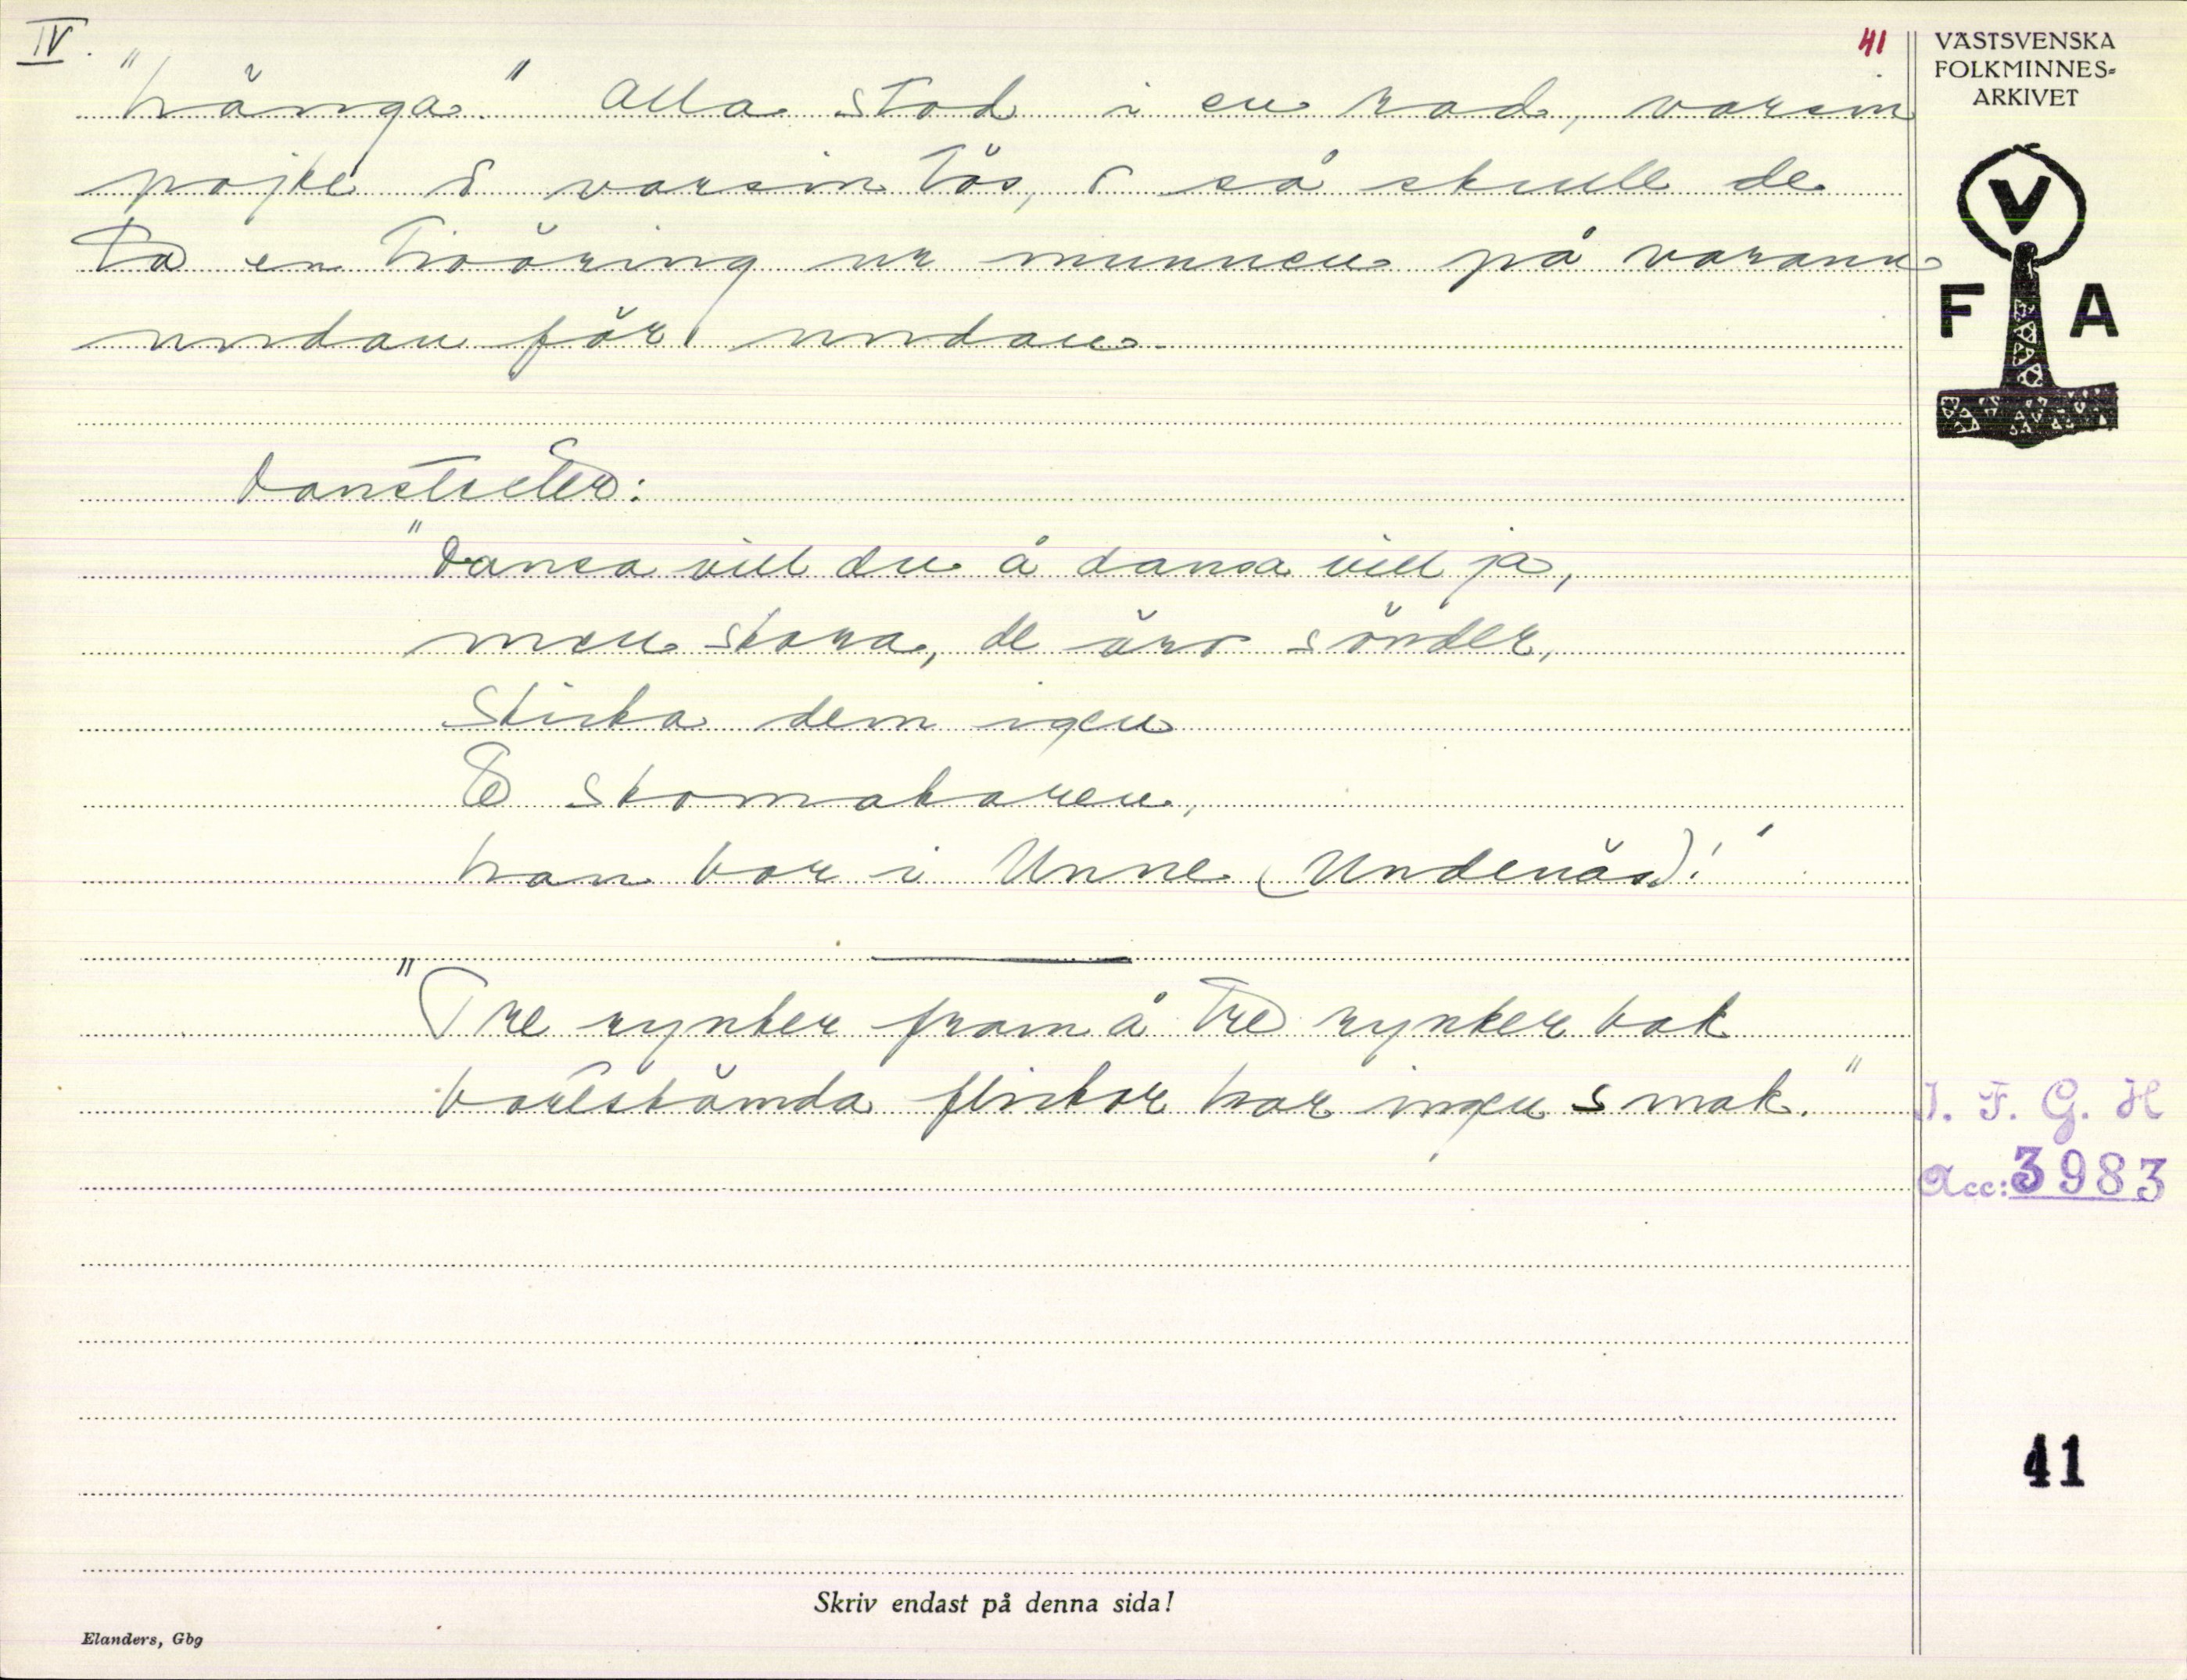 IV.
41
VÄSTSVENSKA
FOLKMINNES-
ARKIVET
V
F A
"hänga." Alla stod i en rad, varsin
pojke o varsin tös, o så skulle de
ta en tioöring ur munnen på varann
undan för undan.
Danstrller:
"Dansa vill du å dansa vill ja,
men skora, de äro sönder,
Skicka dem igen
Te skomakaren,
han bor i Unne (Undenäs)!"
"Tre rynker fram å tre rynker bak
bortskämda flickor har ingen smak."
I. F. G. H
Acc: 3983
41
Skriv endast på denna sida!
Elanders, Gbg